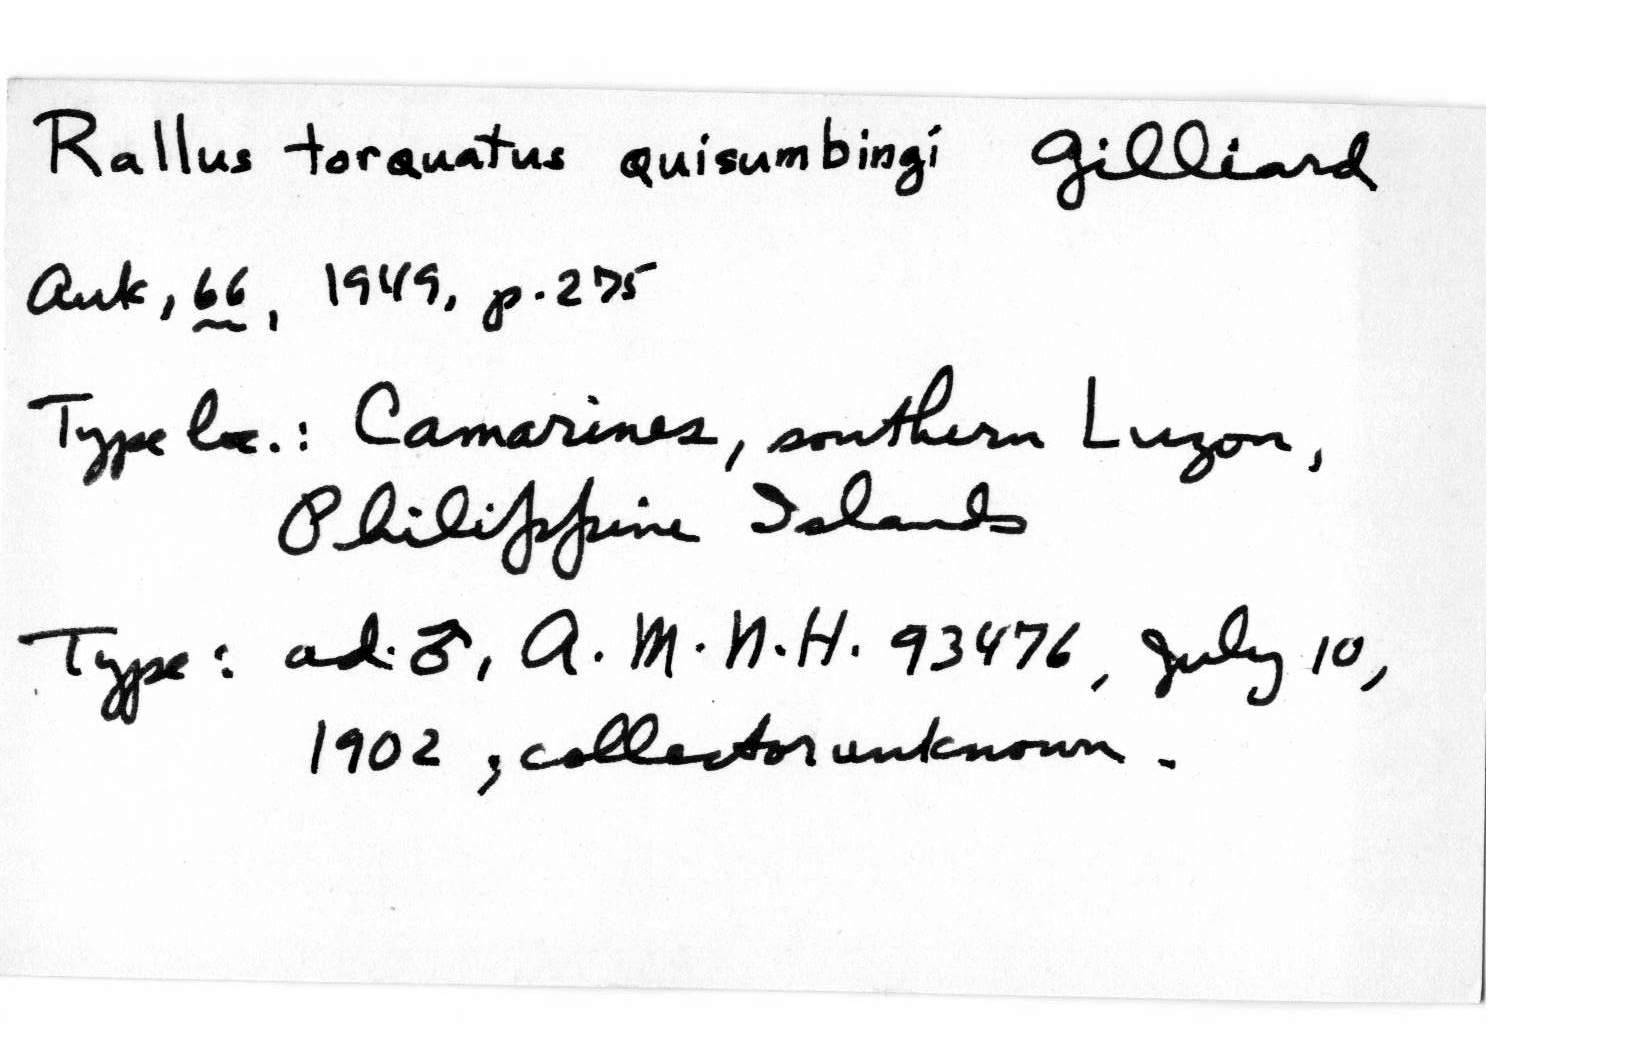 Rallus torquatus quisumbingi Gilliard
Auk, 66, 1949, p. 275
Type loc.: Camarines, southern Luzon,
Philippine Islands
Type: ad. ♂, A. M. N. H. 93476, July 10,
1902, collector unknown.